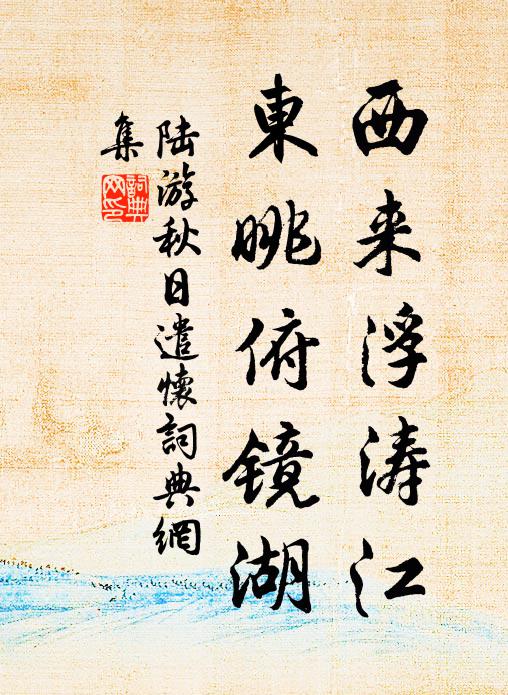 西来浮涛江
東眺俯镜湖
陆游秋日遣懷詞典網
集
詞典
网印